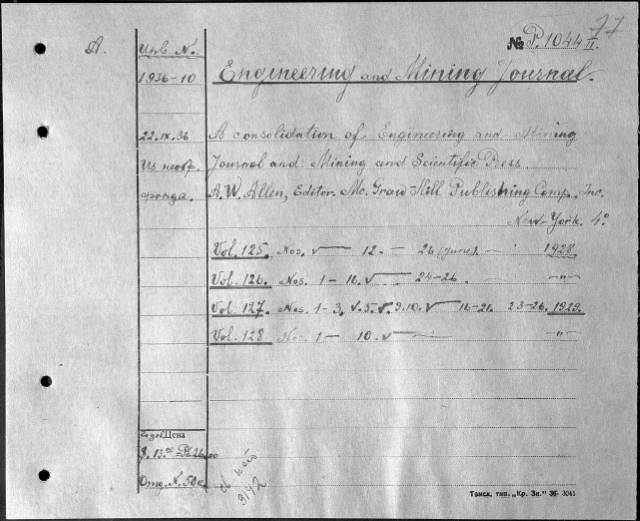 77
№ P. 1044 II.
A.
Инв. N.
1936-10
Engineering and Mining Journal.
22.IX.36
A consolidation of Engineering and Mining
Из необр.
Journal and Mining and Scientific Press.
фонда.
A.W. Allen, Editor. Mc. Graw-Hill Publishing Comp., Inc.
New-York. 4°
Vol. 125. Nos. 12 - 26 (June) 1928.
Vol. 126. Nos. 1 - 16. 24-26. -"-
Vol. 127. Nos. 1-3, 5. 9.10. 16-21. 23-26. 1929.
Vol. 128 Nos. 1 - 10. -"-
Цена
3/42
Томск, тип. „Кр. Зн." 36- 3041